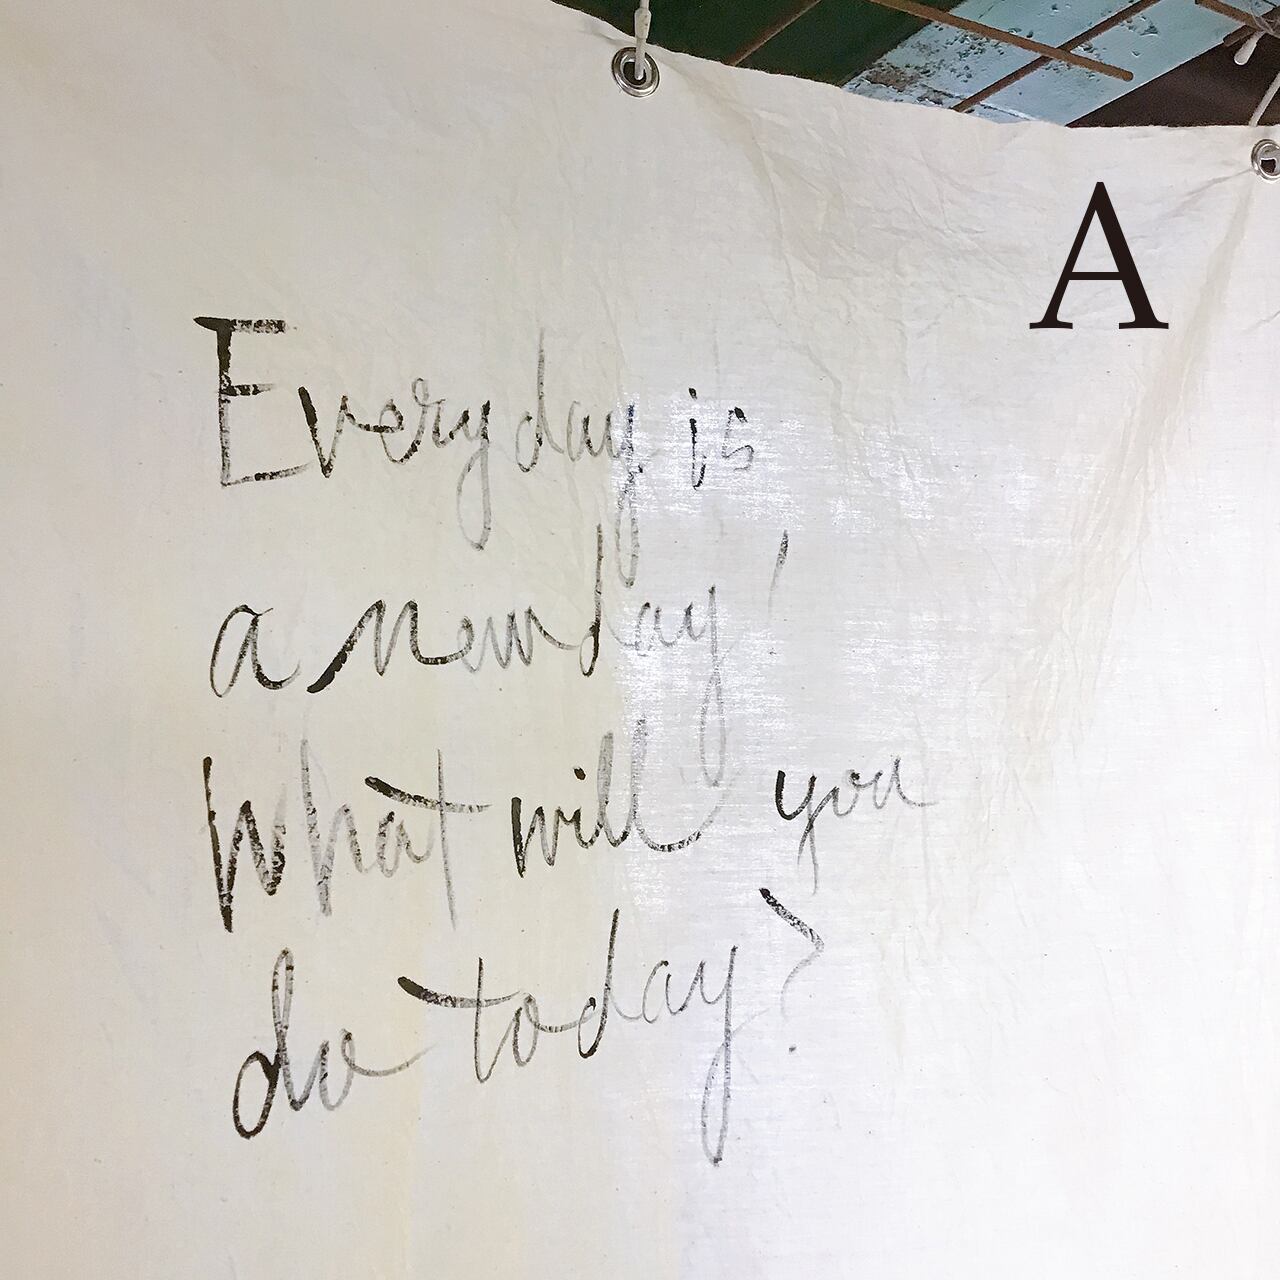 A
Everyday is
a new day!
What will you
do today?